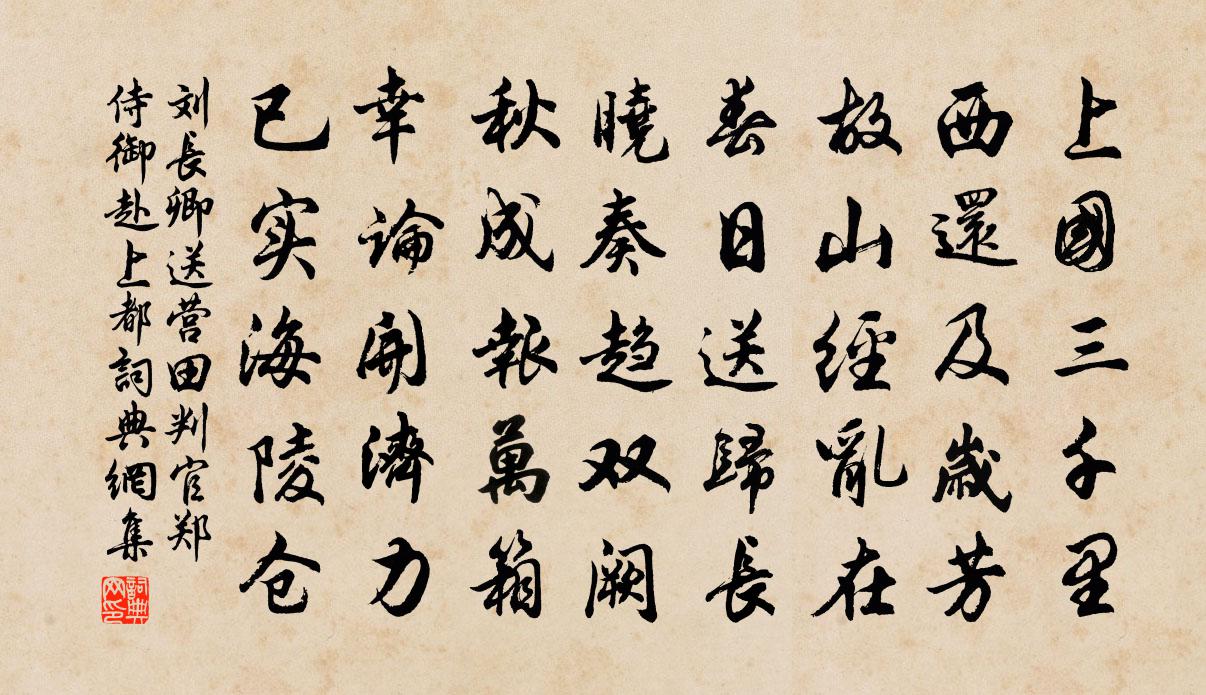 上國三千里
西還及嵗芳
故山經亂在
春日送歸長
曉奏趋双阙
秋成報萬箱
幸論開濟力
已实海陵仓
刘長卿送营田判官郑
侍御赴上都詞典網集
詞典
网印